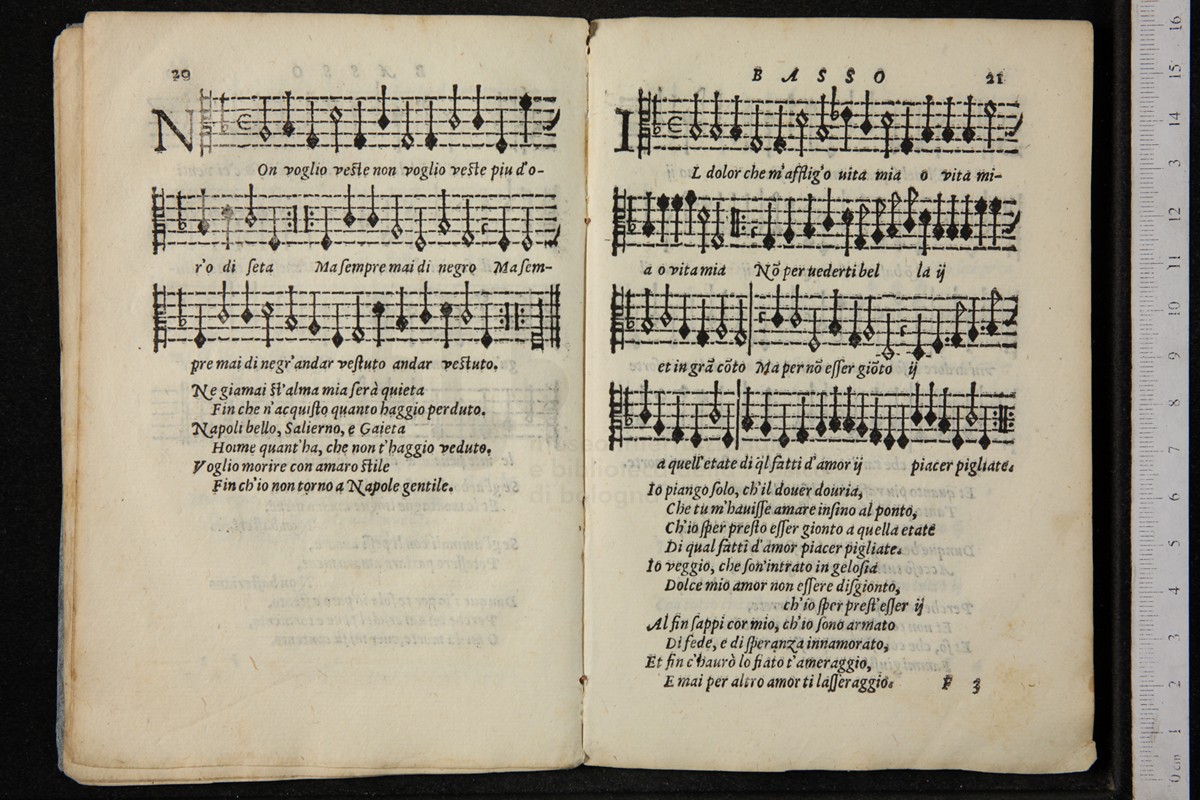 20
N
On voglio veste non voglio veste piu d'o-
r'o di seta Ma sempre mai di negro Ma sem-
pre mai di negr'andar vestuto andar vestuto.
Ne giamai st'alma mia serà quieta
Fin che n'acquisto quanto haggio perduto.
Napoli bello, Salierno, e Gaieta
Hoime quant'ha, che non t'haggio veduto.
Voglio morire con amaro stile
Fin ch'io non torno a Napole gentile.
BASSO 21
I
L dolor che m'afflig'o uita mia o vita mi-
a o vita mia Nõ per uederti bel la ij
et in grã cõto Ma per nõ esser giõto ij
a quell'etate di q̃l fatti d'amor ij piacer pigliate.
Io piango solo, ch'il douer douria,
Che tu m'hauisse amare insino al ponto,
Ch'io sper presto esser gionto a quella etate
Di qual fatti d'amor piacer pigliate.
Io veggio, che son'intrato in gelosia
Dolce mio amor non essere disgionto,
ch'io sper prest'esser ij
Al fin sappi cor mio, ch'io sono armato
Di fede, e di speranza innamorato,
Et fin c'haurò lo fiato t'ameraggio,
E mai per altro amor ti lasseraggio.
F 3